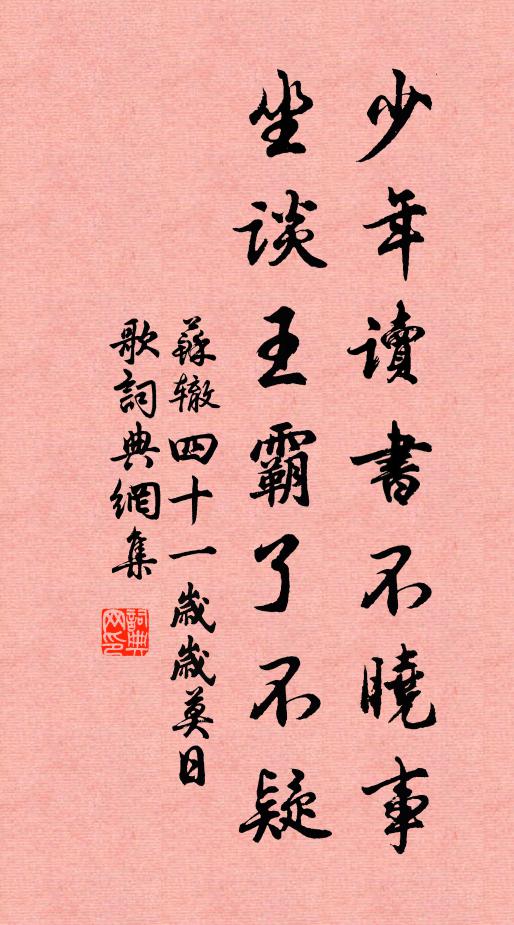 少年讀書不曉事
坐談王霸了不疑
蘇辙四十一歲歲莫日
歌詞典網集
詞典网印